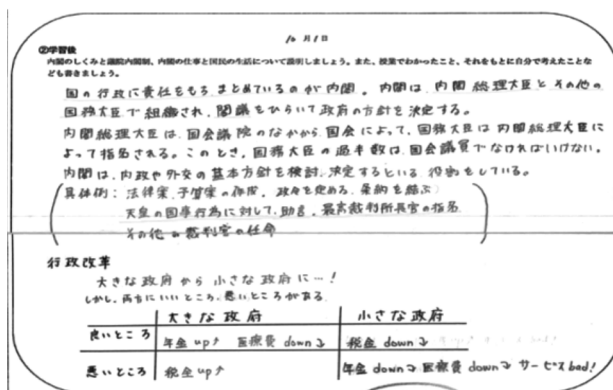 10月1日
②学習後
内閣のしくみと議院内閣制、内閣の仕事と国民の生活について説明しましょう。また、授業でわかったこと、それをもとに自分で考えたことな
ども書きましょう。
国の行政に責任をもち、まとめているのが内閣。内閣は、内閣総理大臣とその他の
国務大臣で組織され、閣議をひらいて政府の方針を決定する。
内閣総理大臣は、国会議院のなかから国会によって、国務大臣は内閣総理大臣に
よって指名される。このとき、国務大臣の過半数は国会議員でなければいけない。
内閣は、内政や外交の基本方針を検討、決定するという役割をしている。
具体例:法律案、予算案の作成、政令を定める、条約を結ぶ
天皇の国事行為に対して、助言、最高裁判所長官の指名
その他の裁判官の任命
行政改革
大きな政府から小さな政府に…!
しかし、両方にいいところ、悪いところがある。
大きな政府 小さな政府
良いところ 年金up↑ 医療費down↓ 税金down↓
悪いところ 税金up↑ 年金down↓医療費down↓サービスbad!